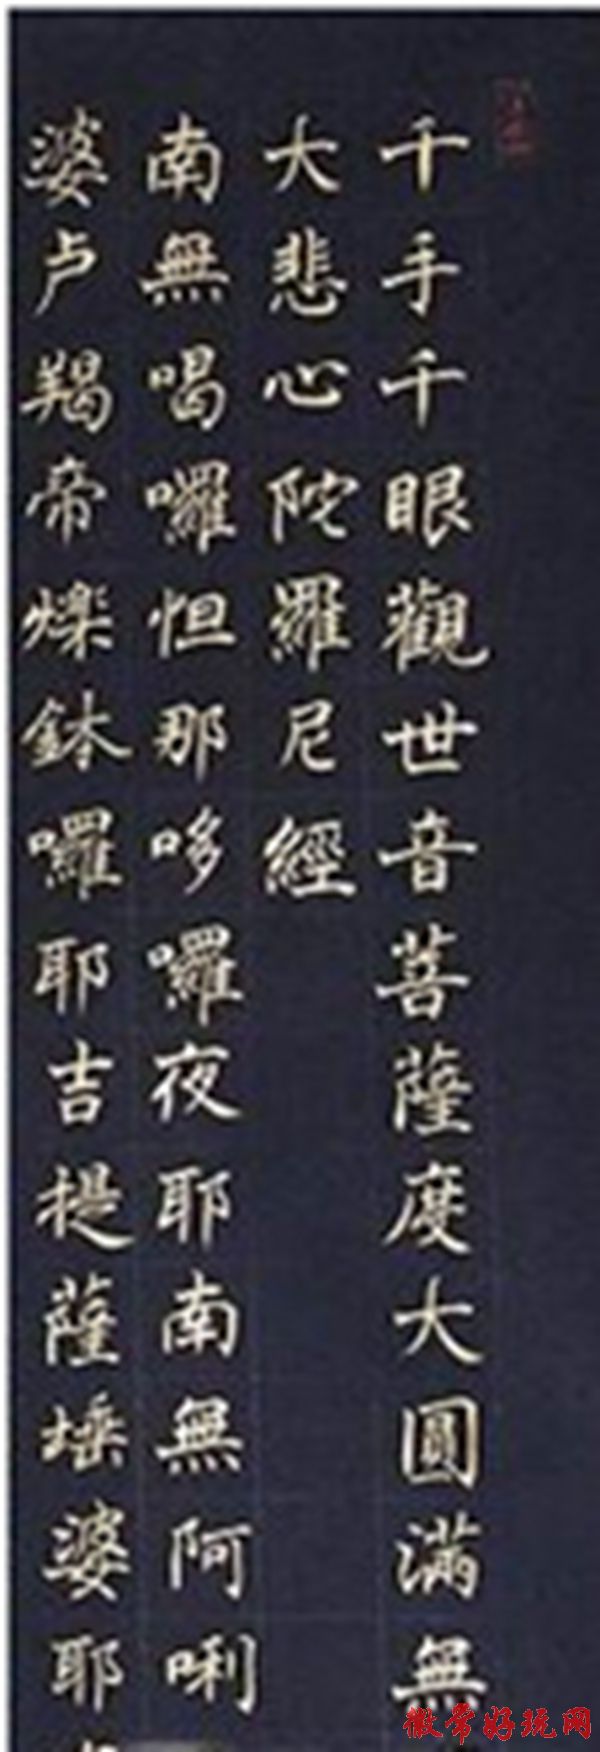 千手千眼觀世音菩薩度大圓滿無
大悲心陀羅尼經
南無喝囉怛那哆囉夜耶南無阿唎
婆卢羯帝爍鉢囉耶菩提薩埵婆耶
微常好玩网